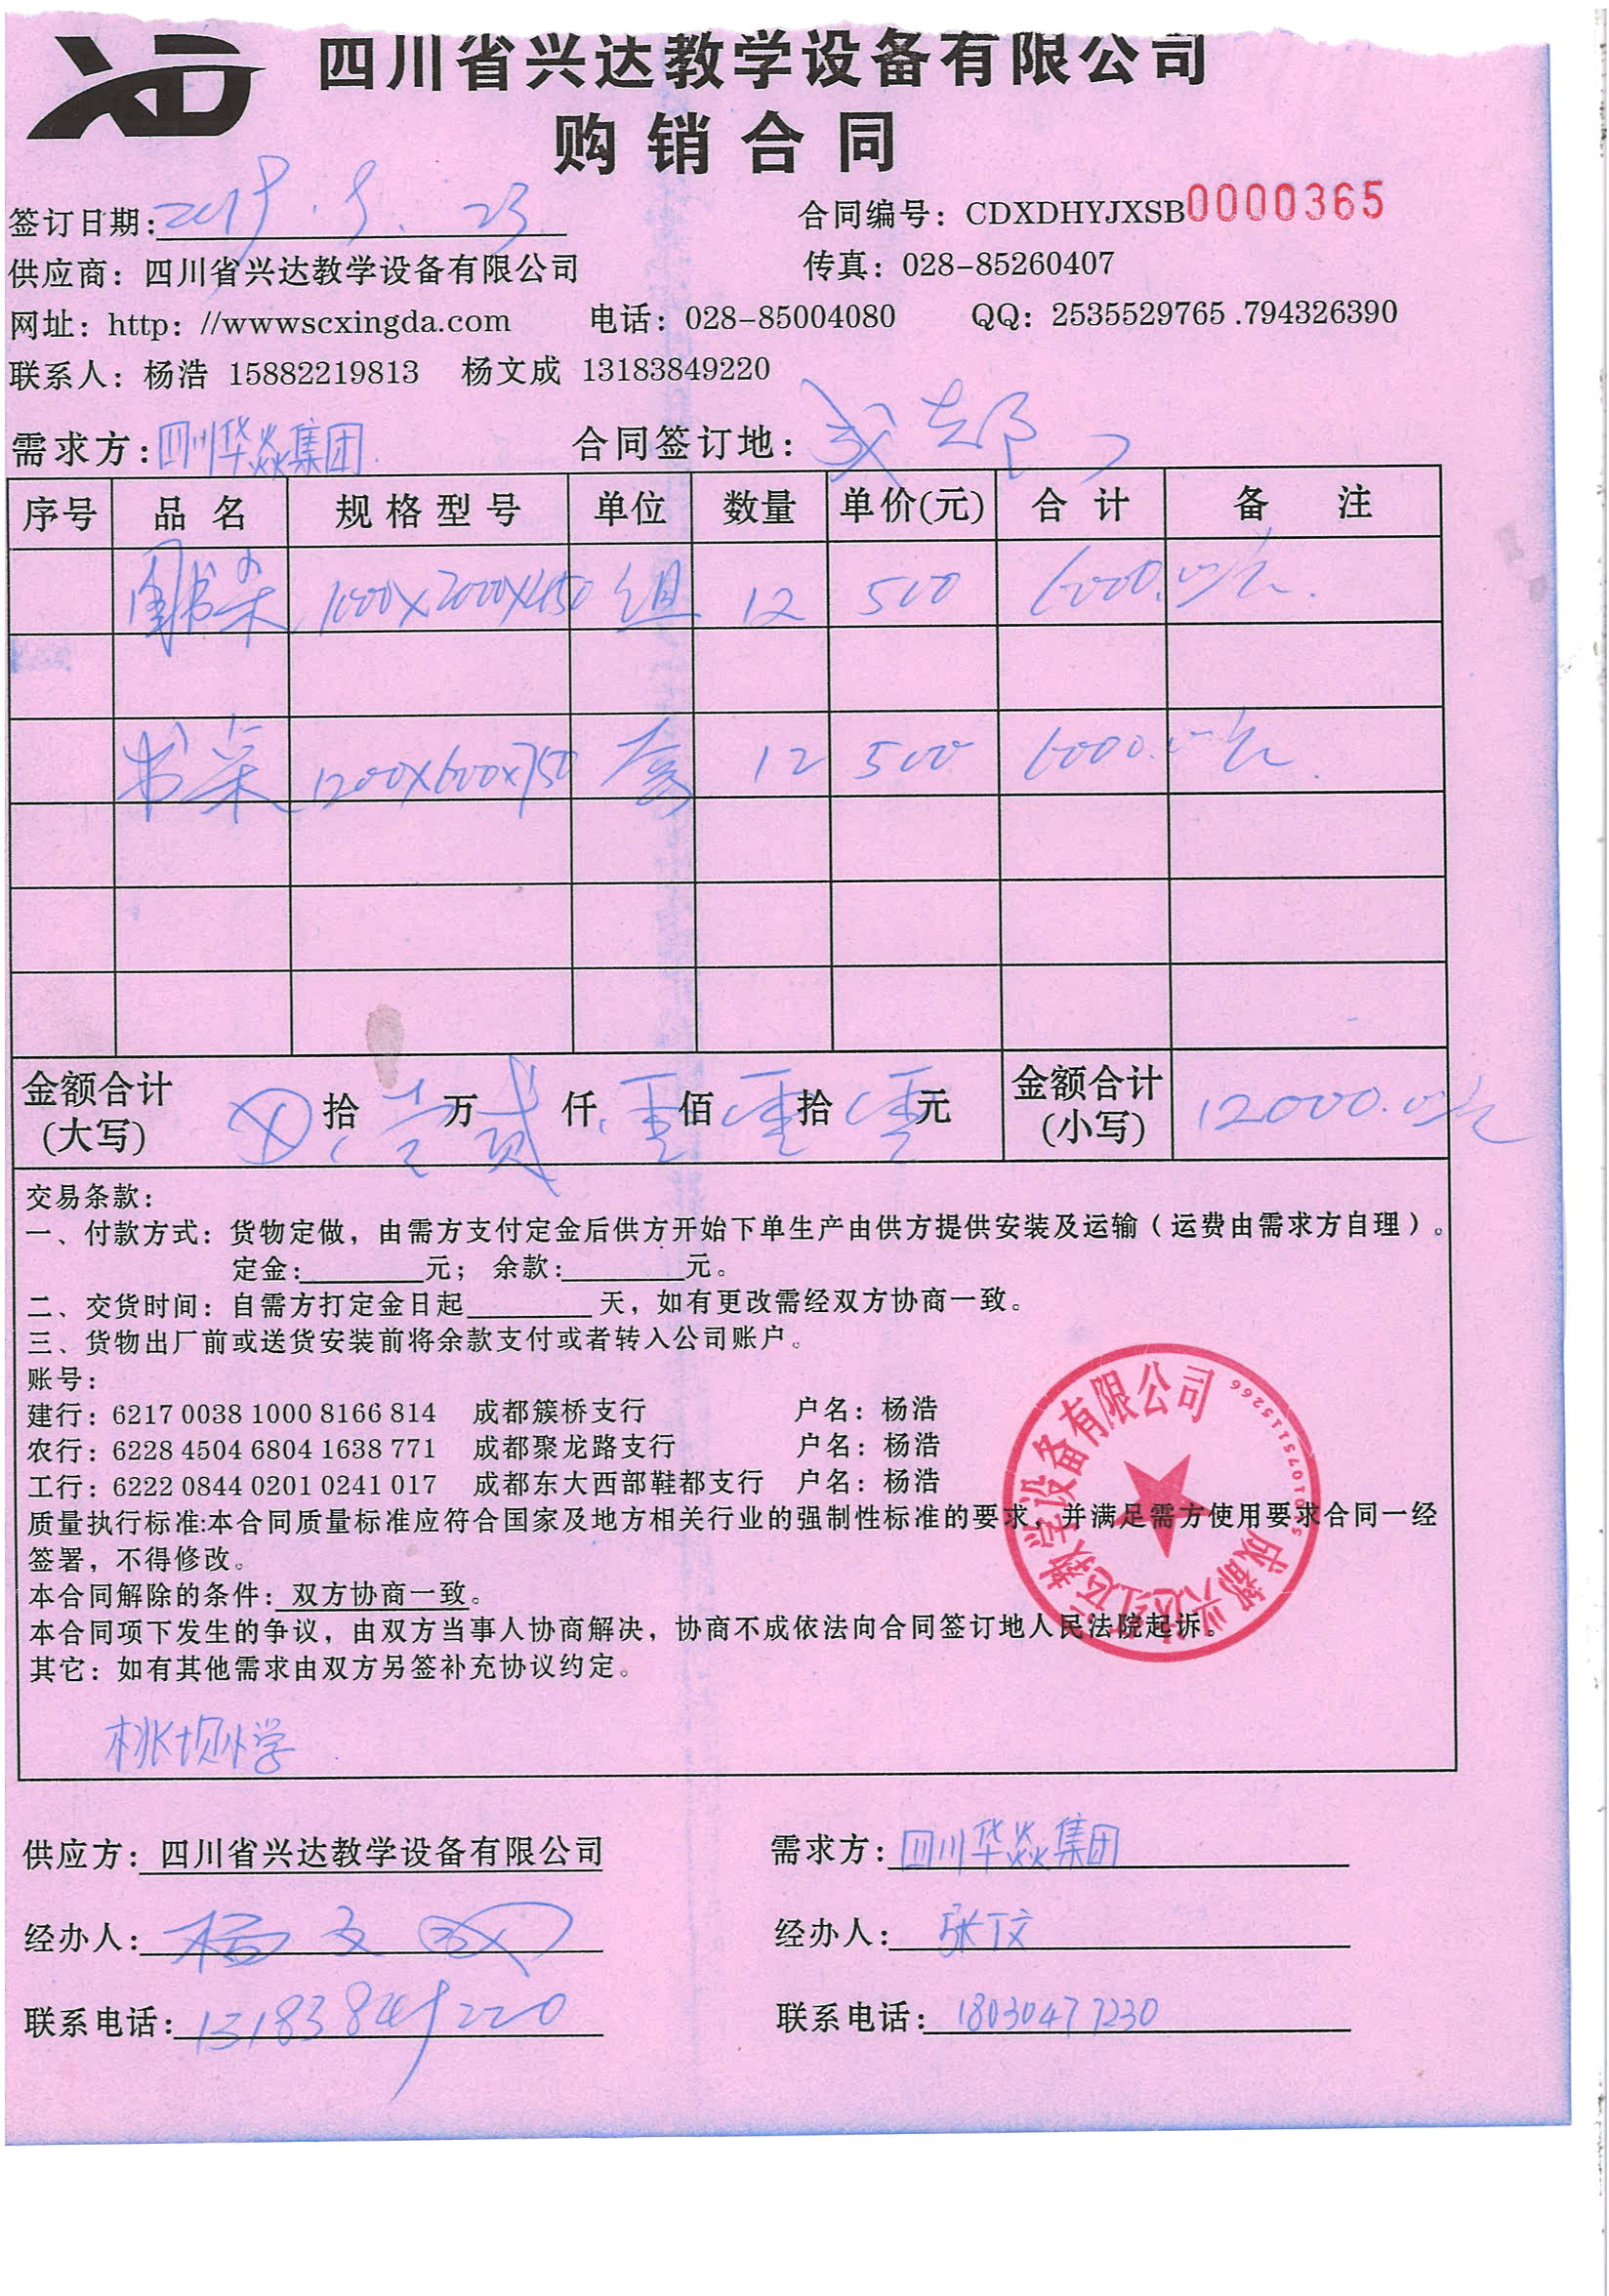 四川省兴达教学设备有限公司
购销合同
签订日期：2019.9.23
合同编号：CDXDHYJXSB0000365
供应商：四川省兴达教学设备有限公司 传真：028-85260407
网址：http：//wwwscxingda.com 电话：028-85004080 QQ：2535529765 .794326390
联系人：杨浩 15882219813 杨文成 13183849220
需求方：四川华焱集团 合同签订地：成都
序号 品名 规格型号 单位 数量 单价(元) 合计 备注
1000×2000×450 组 12 500 6000.00元.
书桌 1200×600×750 套 12 500 6000.00元.
金额合计(大写) ⊗拾壹万贰仟零佰零拾零元 金额合计(小写) 12000.00元
交易条款：
一、付款方式：货物定做，由需方支付定金后供方开始下单生产由供方提供安装及运输（运费由需求方自理）。
定金：元； 余款：元。
二、交货时间：自需方打定金日起 天，如有更改需经双方协商一致。
三、货物出厂前或送货安装前将余款支付或者转入公司账户。
账号：
建行：6217 0038 1000 8166 814 成都簇桥支行 户名：杨浩
农行：6228 4504 6804 1638 771 成都聚龙路支行 户名：杨浩
工行：6222 0844 0201 0241 017 成都东大西部鞋都支行 户名：杨浩
质量执行标准:本合同质量标准应符合国家及地方相关行业的强制性标准的要求，并满足需方使用要求合同一经
签署，不得修改。
本合同解除的条件：双方协商一致。
本合同项下发生的争议，由双方当事人协商解决，协商不成依法向合同签订地人民法院起诉。
其它：如有其他需求由双方另签补充协议约定。
桃坝小学
供应方：四川省兴达教学设备有限公司 需求方：四川华焱集团
经办人：杨文成 经办人：张丁文
联系电话：13183849220 联系电话：18030477230